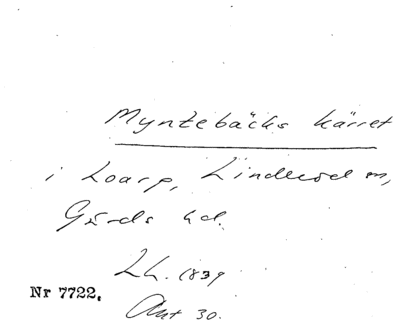 Myntebäcks kärret
i Loarp, Linderöd sn,
Gärds hd.
Lh. 1839
Nr 7722.
Akt 30.